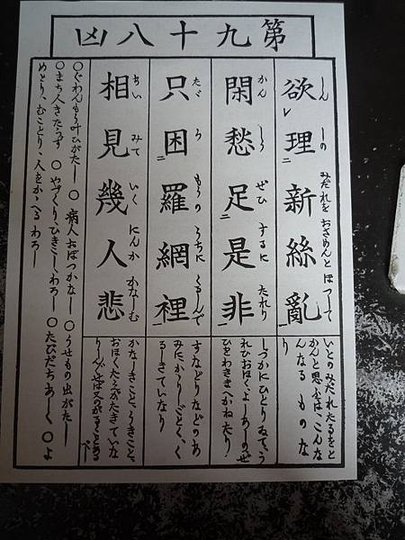 第九十八凶
欲理新絲亂
しん しの みだれを おさめんと ほつして
いとのみだれたるをと
かんと思ふは、こんな
んなるものな
り
閑愁足是非
かん しう ぜひ するに たれり
しづかにひとりゐてう
れひおほくよしあしのぜ
ひをわきまへかねたり
只困羅網裡
たゞ らもうの うちに くるしんで
すなどりなどのあ
みにかゝりしごとく、く
るしきていなり
相見幾人悲
あい みて いく にんか かなしむ
かなしきこと、うきこと、
おほくたえがたきていな
り
○ぐわんもう叶ひがたし ○病人おぼつかなし ○うせもの出がたし
○まち人きたらず ○やづくりひきこしわろし ○たびだちあしく ○よ
めとり、むことり、人をかゝへるわろし